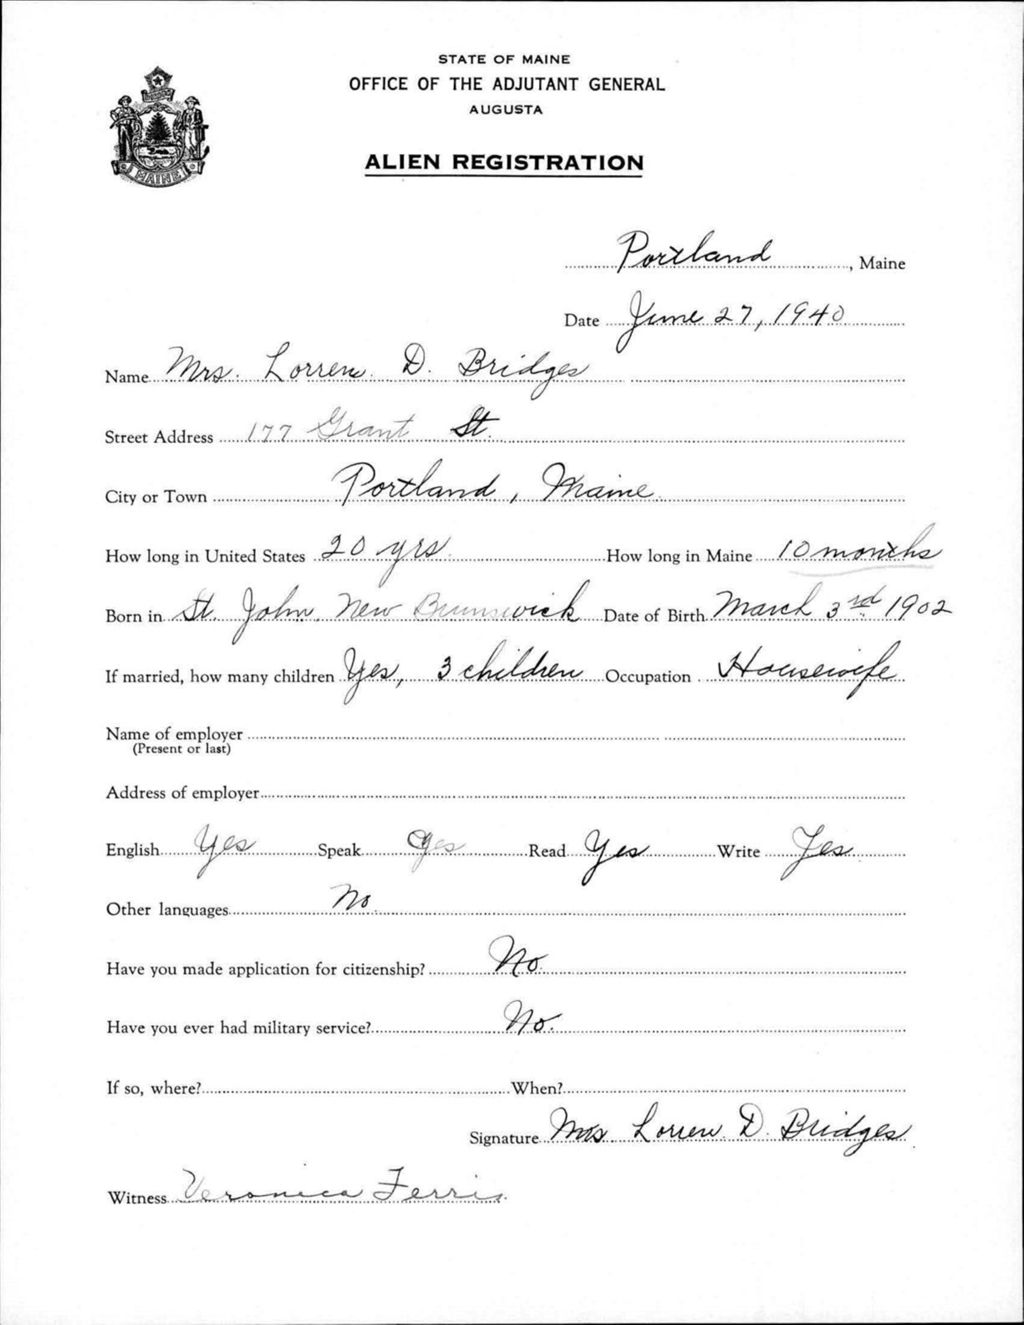 STATE OF MAINE
OFFICE OF THE ADJUTANT GENERAL
AUGUSTA
ALIEN REGISTRATION
MAINE
Portland, Maine
Date June 27, 1940
Name Mrs. Lorren D. Bridges
Street Address 177 Grant St.
City or Town Portland, Maine
How long in United States 20 yrs How long in Maine 10 months
Born in St. John, New Brunswick Date of Birth March 3rd 1902
If married, how many children Yes, 3 children Occupation Housewife
Name of employer
(Present or last)
Address of employer
English Yes Speak Yes Read Yes Write Yes
Other languages No.
Have you made application for citizenship? No.
Have you ever had military service? No.
If so, where? When?
Signature Mrs Lorren D. Bridges
Witness Veronica Ferris